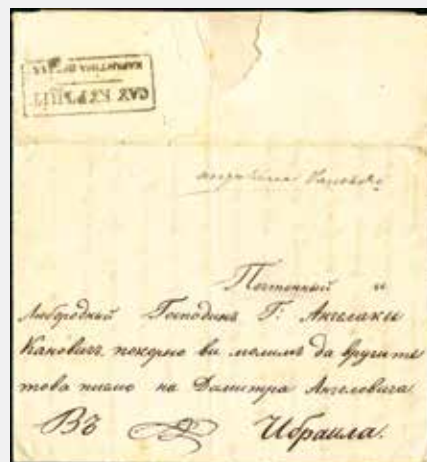 КАРАНТИНА
Почтенный и
Любородный Господинъ Г: Ангелаки
Кановичъ, покорно ви молимъ да вручите
това писмо на Димитра Ангеловича.
Въ Ибраила.